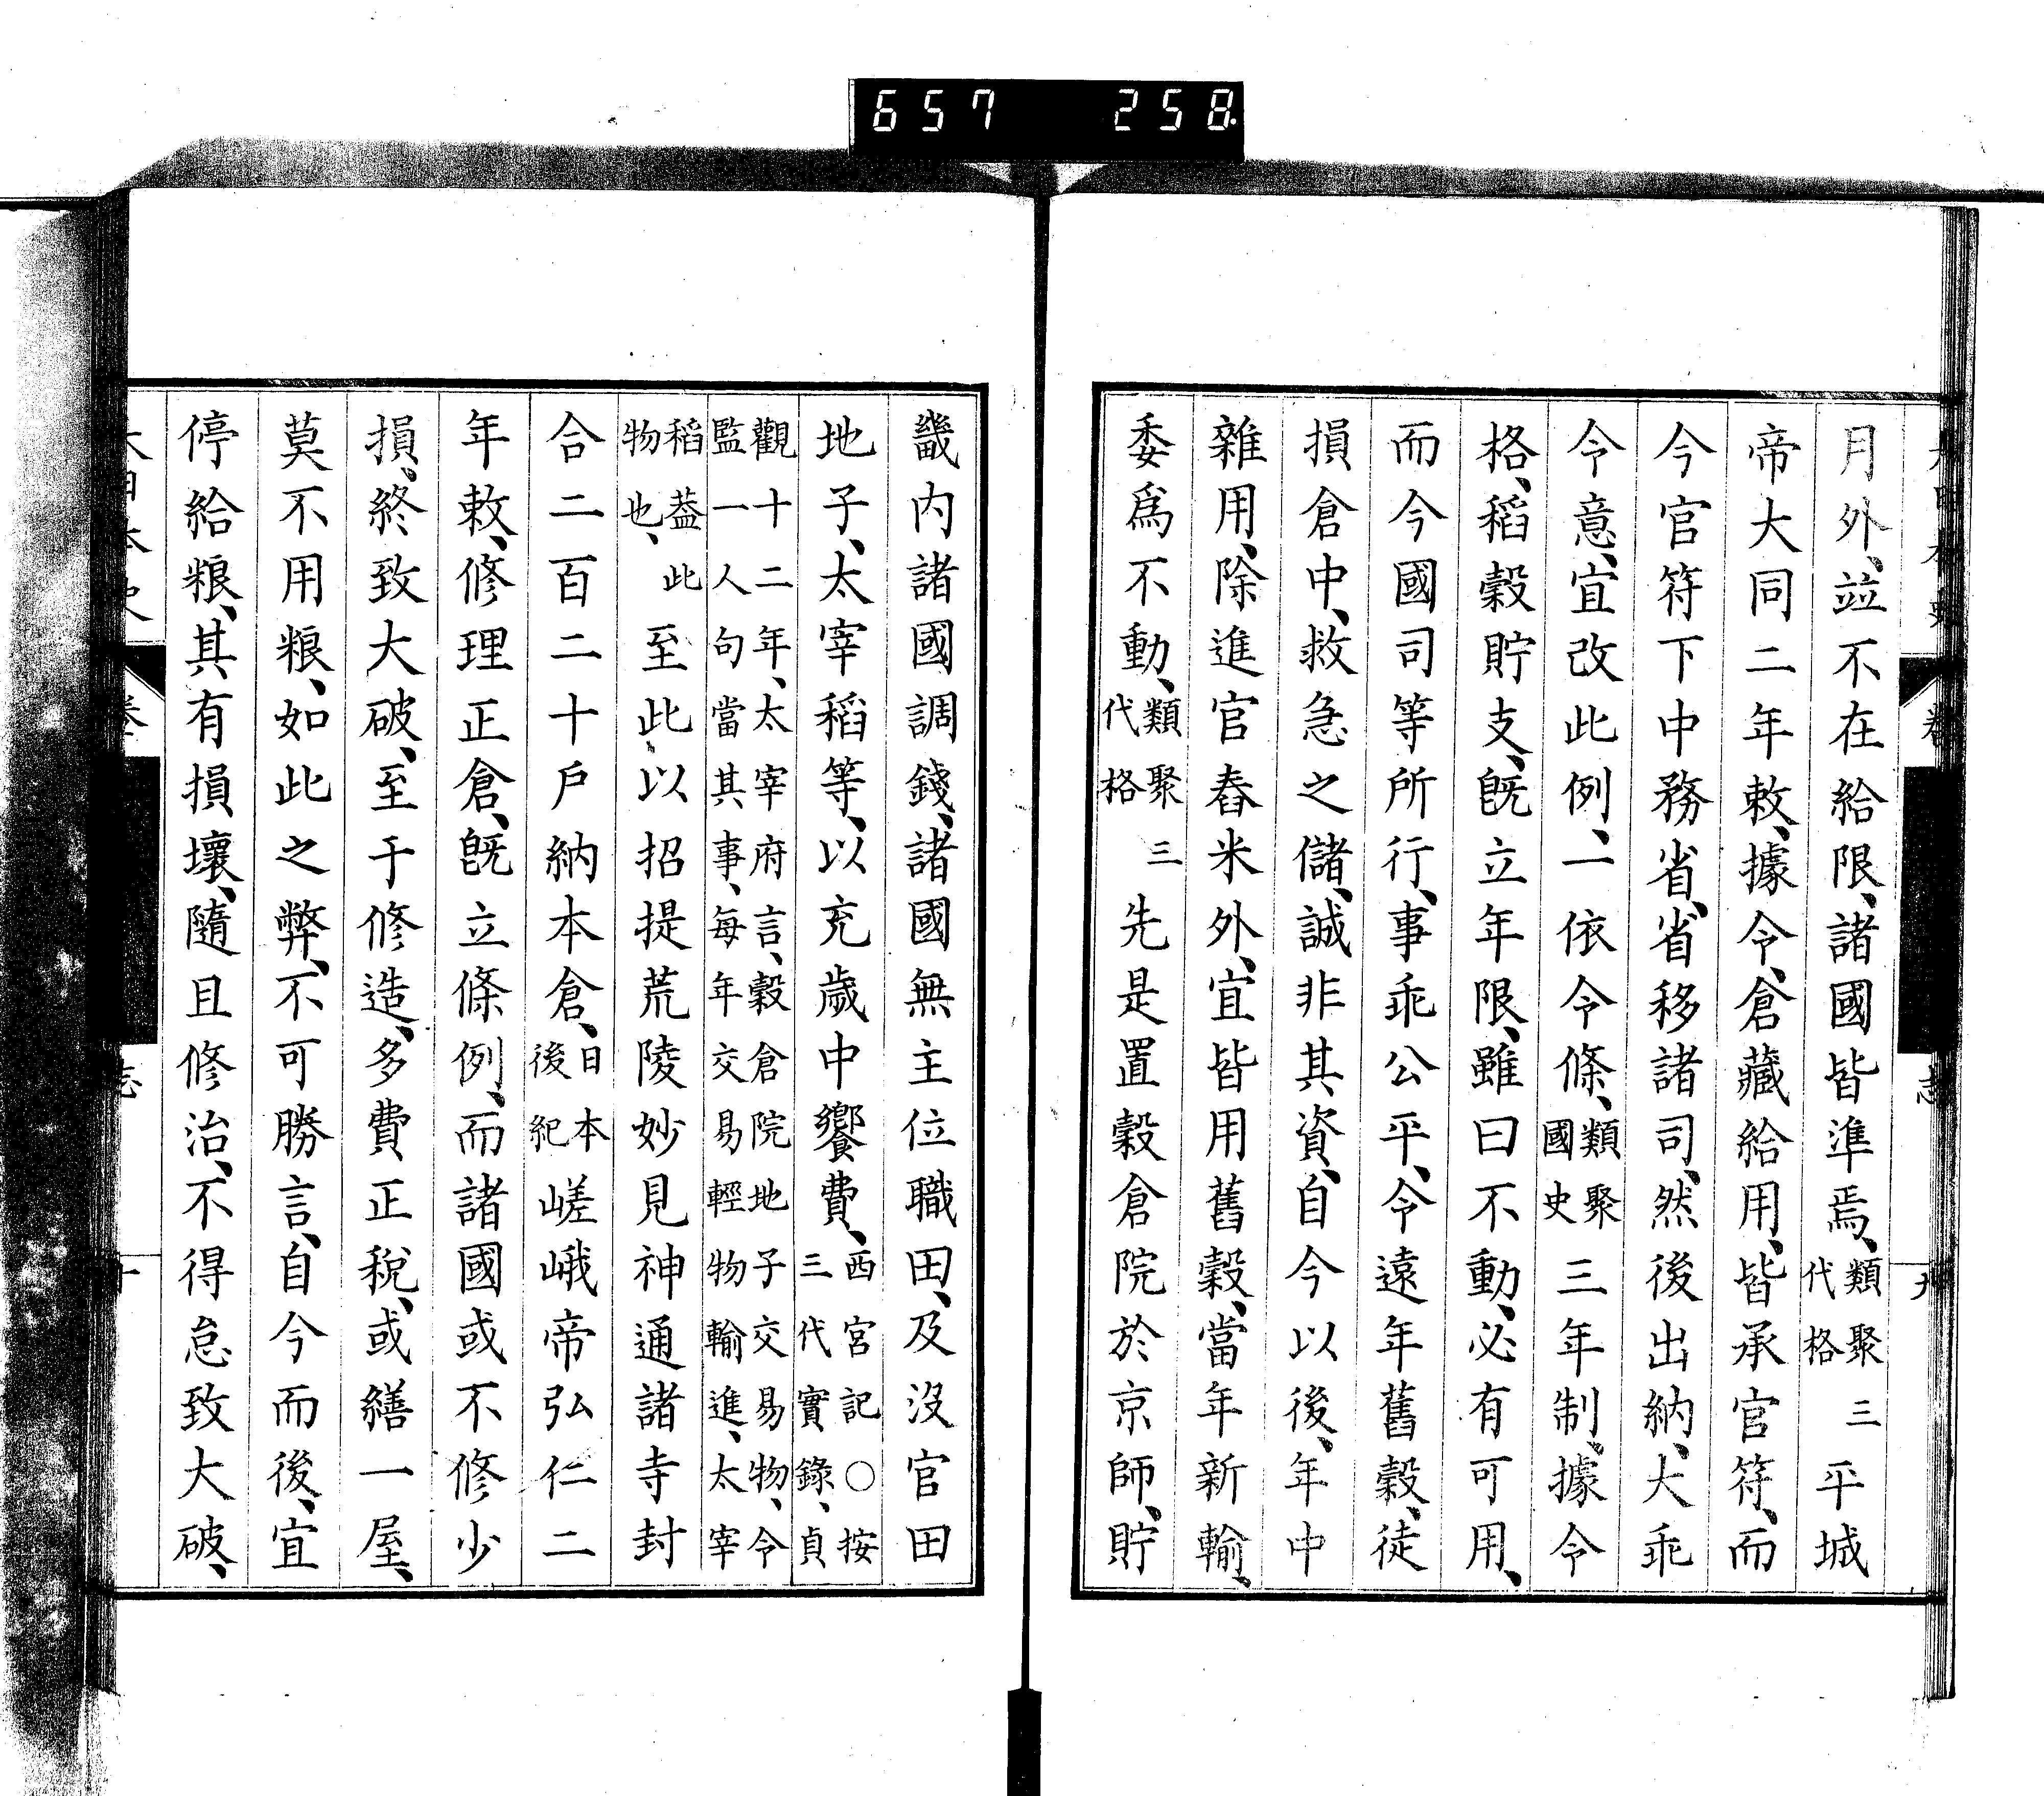 657 258
月外、竝不在給限、諸國皆準焉、類聚三代格平城
帝大同二年敕、據令、倉藏給用、皆承官符、而
今官符下中務省、省移諸司、然後出納、大乖
令意、宜改此例、一依令條、類聚國史三年制、據令
格、稻穀貯支、旣立年限、雖曰不動、必有可用、
而今國司等所行、事乖公平、令遠年舊穀、徒
損倉中、救急之儲、誠非其資、自今以後、年中
雜用、除進官舂米外、宜皆用舊穀、當年新輸、
委爲不動、類聚三代格先是置穀倉院於京師、貯
畿内諸國調錢、諸國無主位職田、及沒官田
地子、太宰稻等、以充歲中饗費、西宮記○按三代實錄、貞
觀十二年、太宰府言、穀倉院地子交易物、令監一人句當其事、每年交易輕物輸進、太宰
稻蓋此物也、至此、以招提荒陵妙見神通諸寺封
合二百二十戶納本倉、日本後紀嵯峨帝弘仁二
年敕、修理正倉、旣立條例、而諸國或不修少
損、終致大破、至于修造、多費正稅、或繕一屋、
莫不用粮、如此之弊、不可勝言、自今而後、宜
停給粮、其有損壞、隨且修治、不得怠致大破、